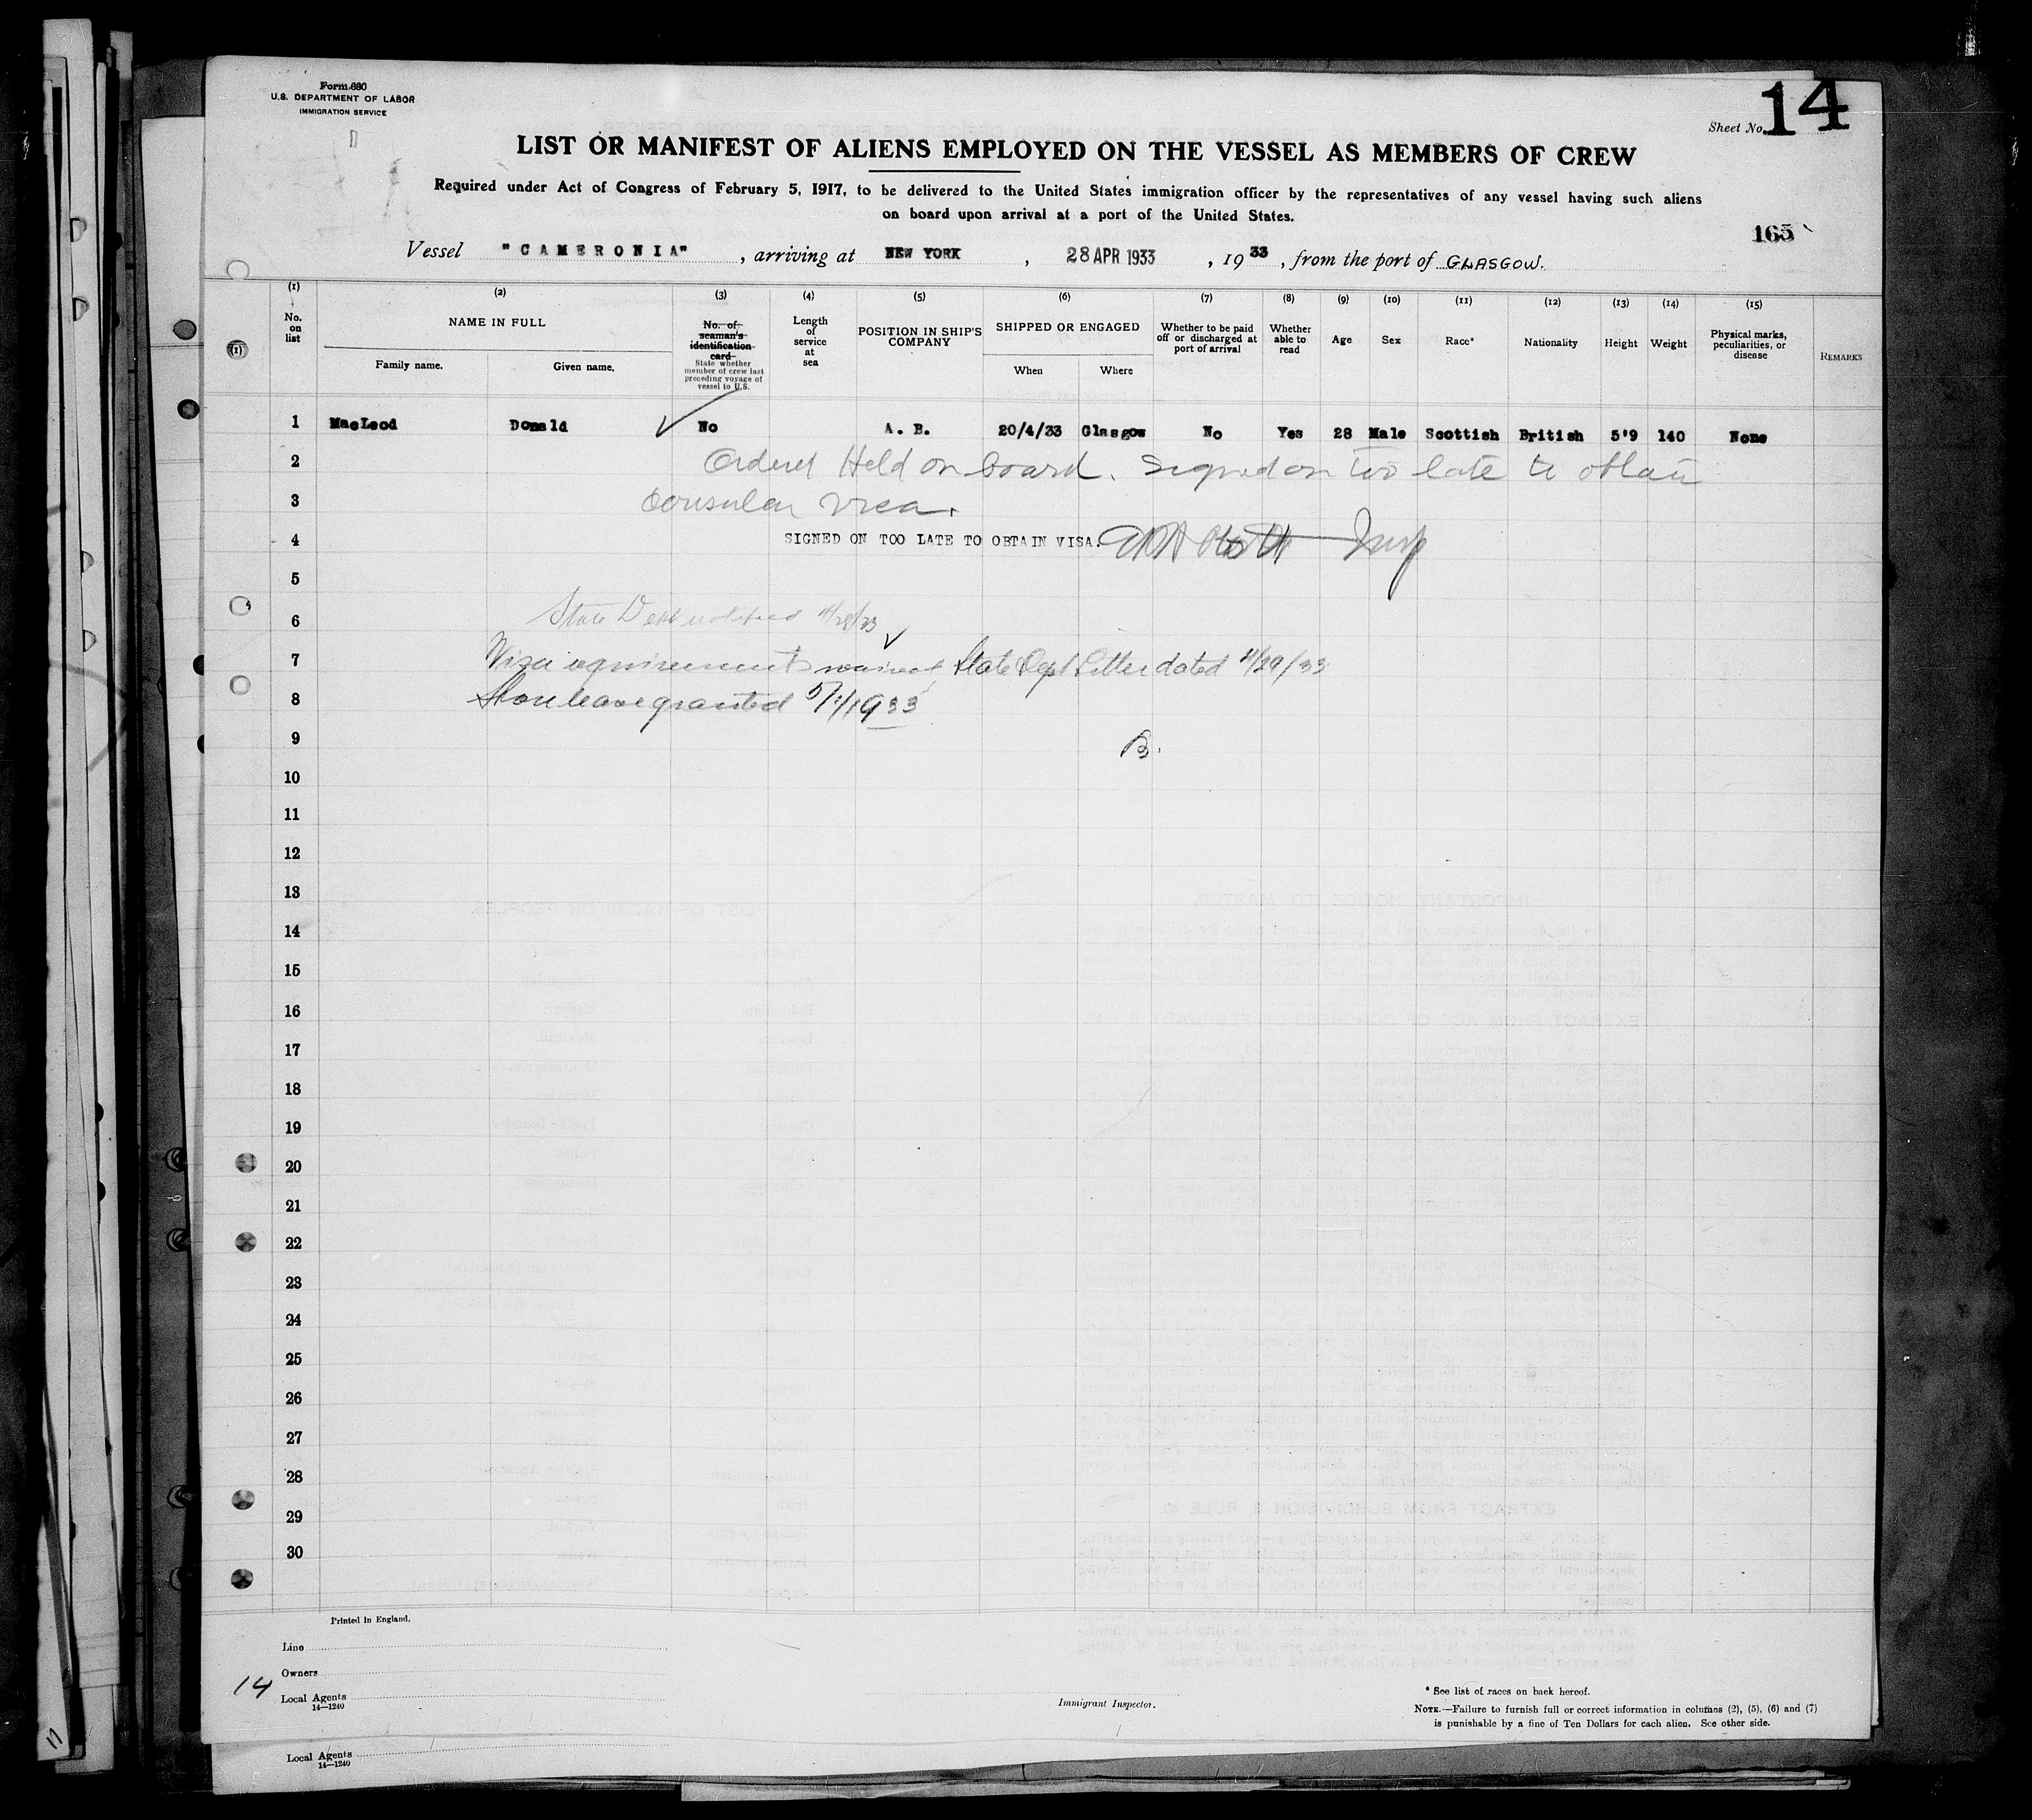 Form 680
U.S. DEPARTMENT OF LABOR
IMMIGRATION SERVICE
Sheet No. 14
LIST OR MANIFEST OF ALIENS EMPLOYED ON THE VESSEL AS MEMBERS OF CREW
Required under Act of Congress of February 5, 1917, to be delivered to the United States immigration officer by the representatives of any vessel having such aliens
on board upon arrival at a port of the United States.
165
Vessel "CAMERONIA", arriving at NEW YORK, 28 APR 1933, 1933, from the port of GLASGOW.
(1) (2) (3) (4) (5) (6) (7) (8) (9) (10) (11) (12) (13) (14) (15)
(1)
No. on list
NAME IN FULL
Family name. Given name.
No. of seaman's identification card
State whether member of crew last preceding voyage of vessel to U.S.
Length of service at sea
POSITION IN SHIP'S COMPANY
SHIPPED OR ENGAGED
When Where
Whether to be paid off or discharged at port of arrival
Whether able to read
Age
Sex
Race*
Nationality
Height
Weight
Physical marks, peculiarities, or disease
REMARKS
1 MacLeod Donald No A. B. 20/4/33 Glasgow No Yes 28 Male Scottish British 5'9 140 None
2 Ordered Held on board. Signed on too late to obtain
3 consular visa.
4 SIGNED ON TOO LATE TO OBTAIN VISA. Insp
5
6 State Dept notified 4/28/33
7 Visa requirements waived State Dept Letter dated 4/29/33
8 Shore leave granted 5/1/1933
9 B.
10
11
12
13
14
15
16
17
18
19
20
21
22
23
24
25
26
27
28
29
30
Printed in England.
Line
Owners
14
Local Agents
14—1240
Immigrant Inspector.
* See list of races on back hereof.
NOTE.—Failure to furnish full or correct information in columns (2), (5), (6) and (7)
is punishable by a fine of Ten Dollars for each alien. See other side.
Local Agents
14—1240
11